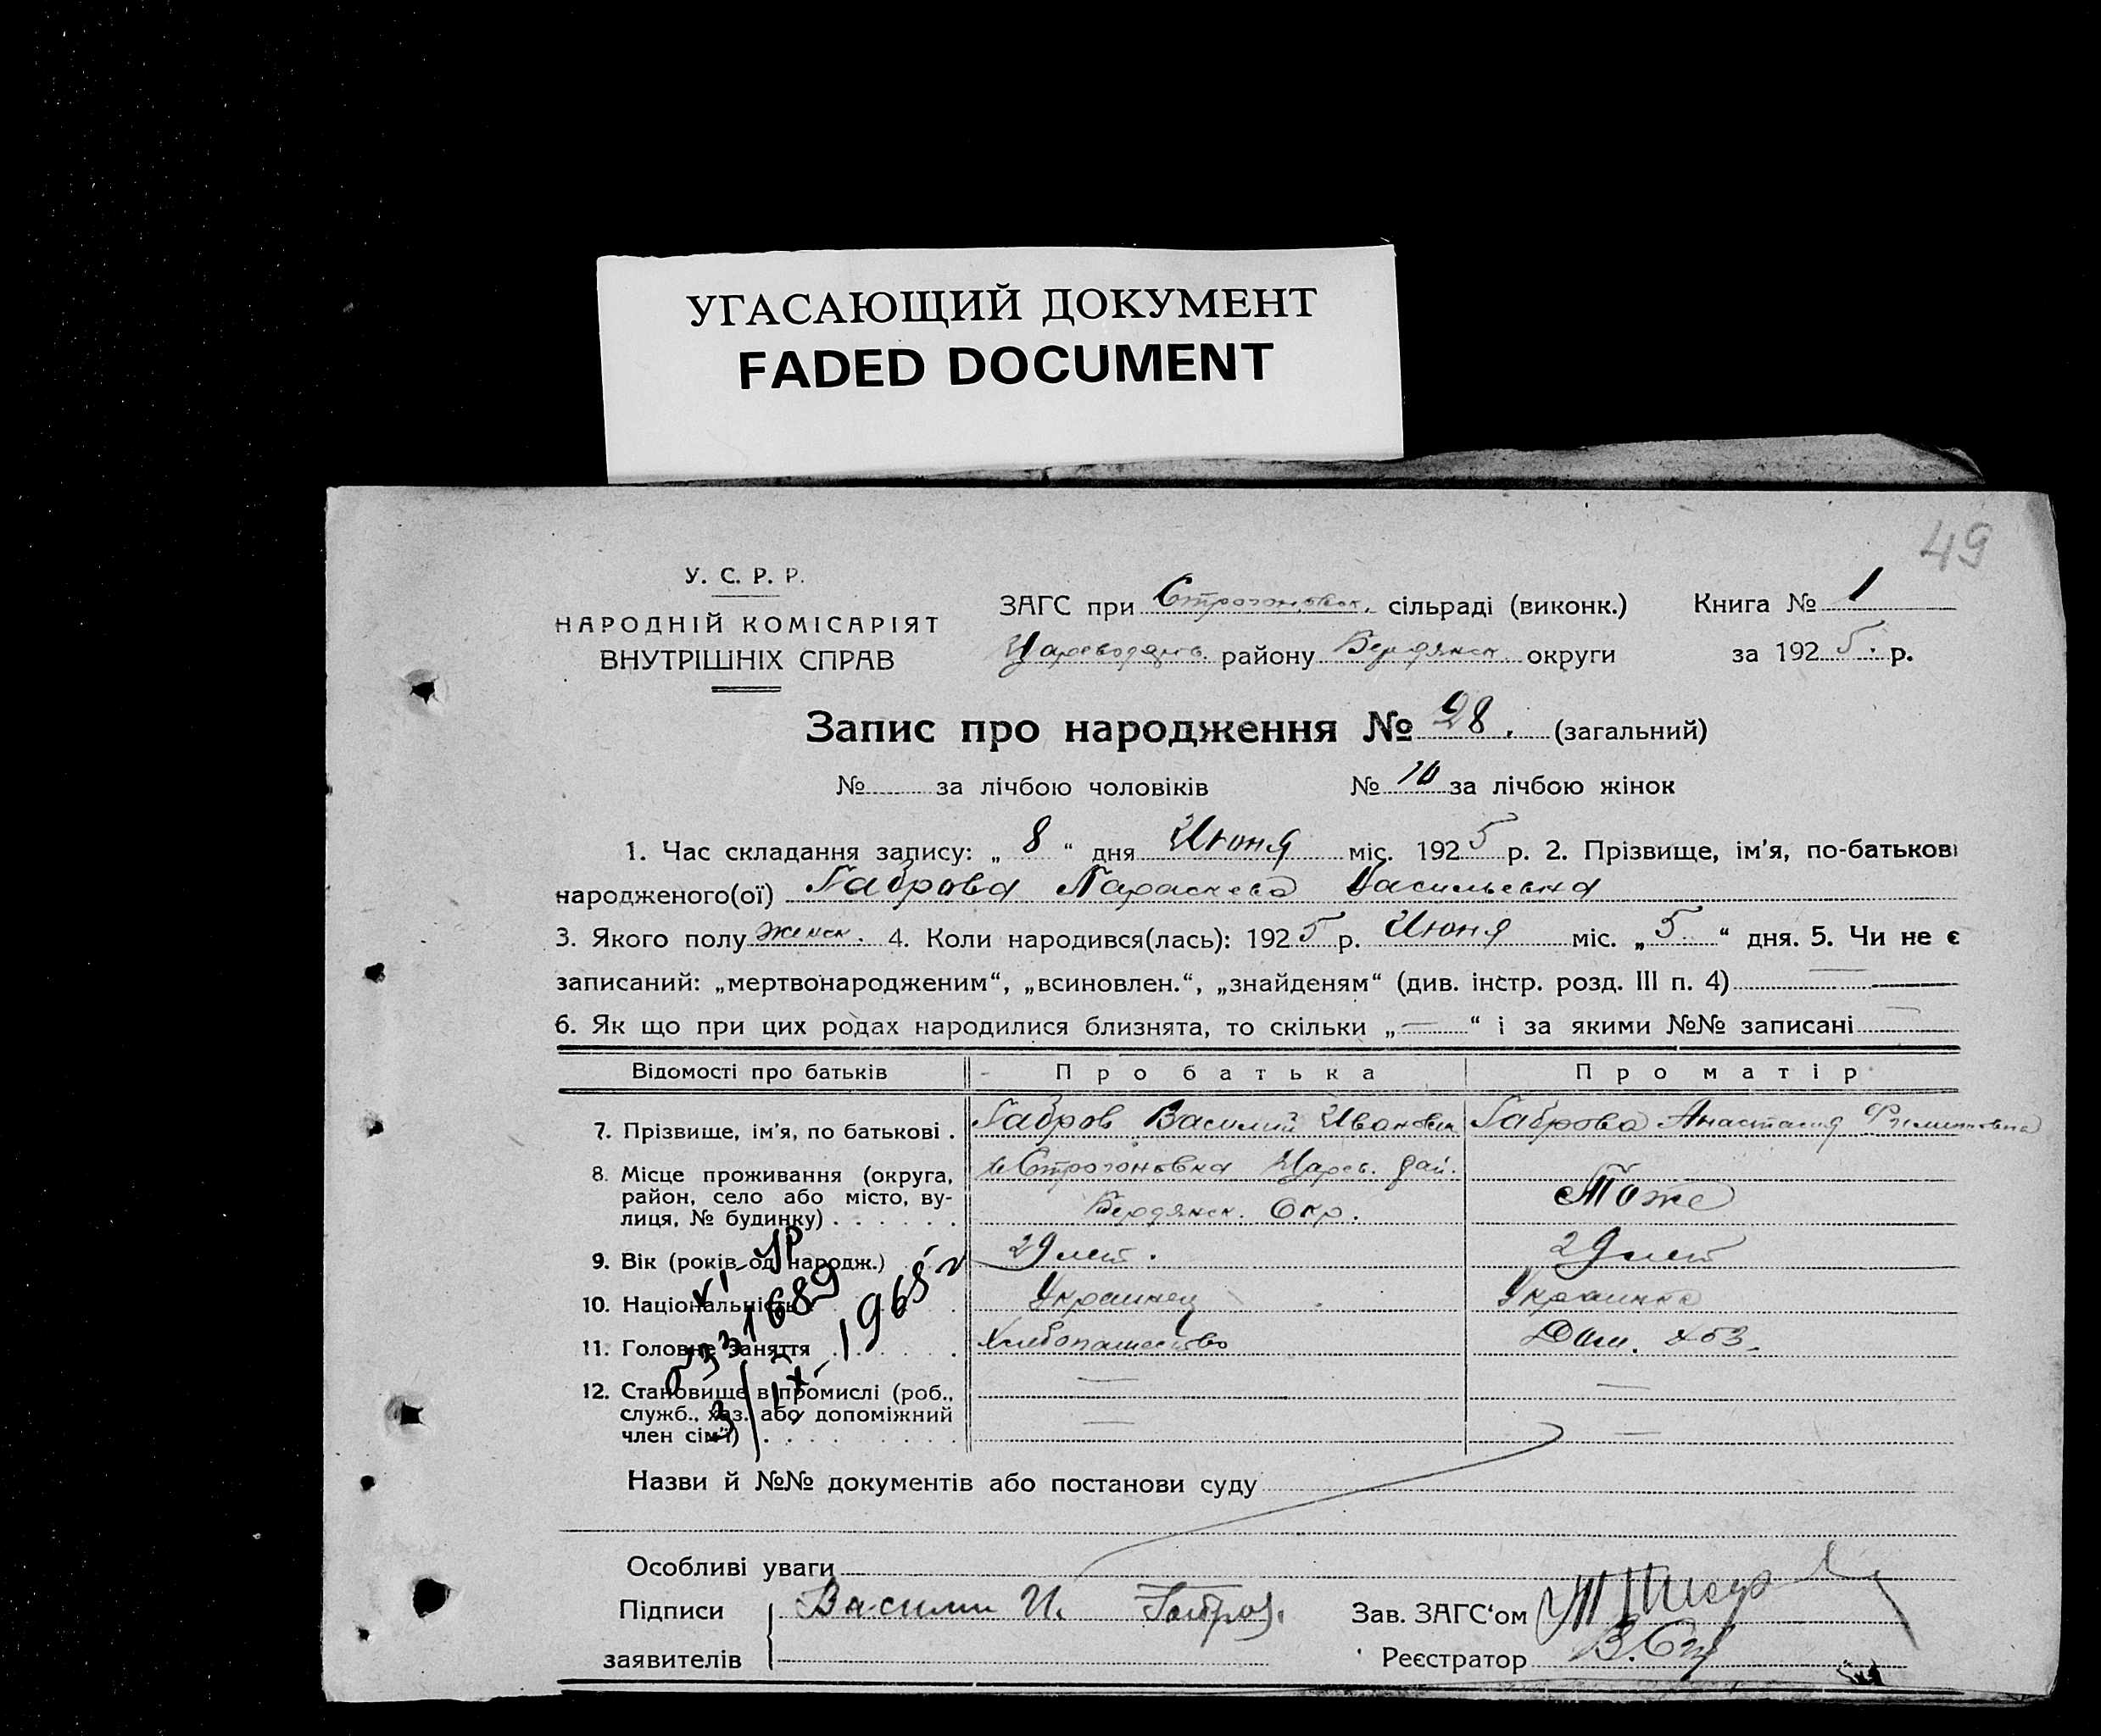 УГАСАЮЩИЙ ДОКУМЕНТ
FADED DOCUMENT
49
У. С. Р. Р.
НАРОДНІЙ КОМІСАРІЯТ
ВНУТРІШНІХ СПРАВ
ЗАГС при Строгоновск. сільраді (виконк.) Книга № 1
Цареводарв. району Бердянск. округи за 1925. р.
Запис про народження № 28. (загальний)
№ за лічбою чоловіків № 10 за лічбою жінок
1. Час складання запису: „ 8 “ дня Июня міс. 1925 р. 2. Прізвище, ім'я, по-батькові
народженого(ої) Габрова Параскева Васильевна
3. Якого полу женск. 4. Коли народився(лась): 1925 р. Июня міс. „ 5 “ дня. 5. Чи не є
записаний: „мертвонародженим“, „всиновлен.“, „знайденям“ (див. інстр. розд. III п. 4) —
6. Як що при цих родах народилися близнята, то скільки „ — “ і за якими №№ записані —
Відомості про батьків Про батька Про матір
7. Прізвище, ім'я, по батькові . Габров Василий Иванович Габрова Анастасия Филипповна
8. Місце проживання (округа, район, село або місто, вулиця, № будинку) . . . . . .
с Строгоновка Царев. рай.
Бердянск. Окр.
Тоже
9. Вік (років од народж.) 29 лет. 29 лет
10. Національність Украинец Украинка
11. Головне заняття Хлебопашество Дом. хоз.
12. Становище в промислі (роб., служб., хаз. або допоміжний член сім'ї) — —
— —
VI-УР
0331689
3/IX-1965 г
Назви й №№ документів або постанови суду
Особливі уваги
Підписи Василий И. Габров. Зав. ЗАГС‘ом
заявителів Реєстратор